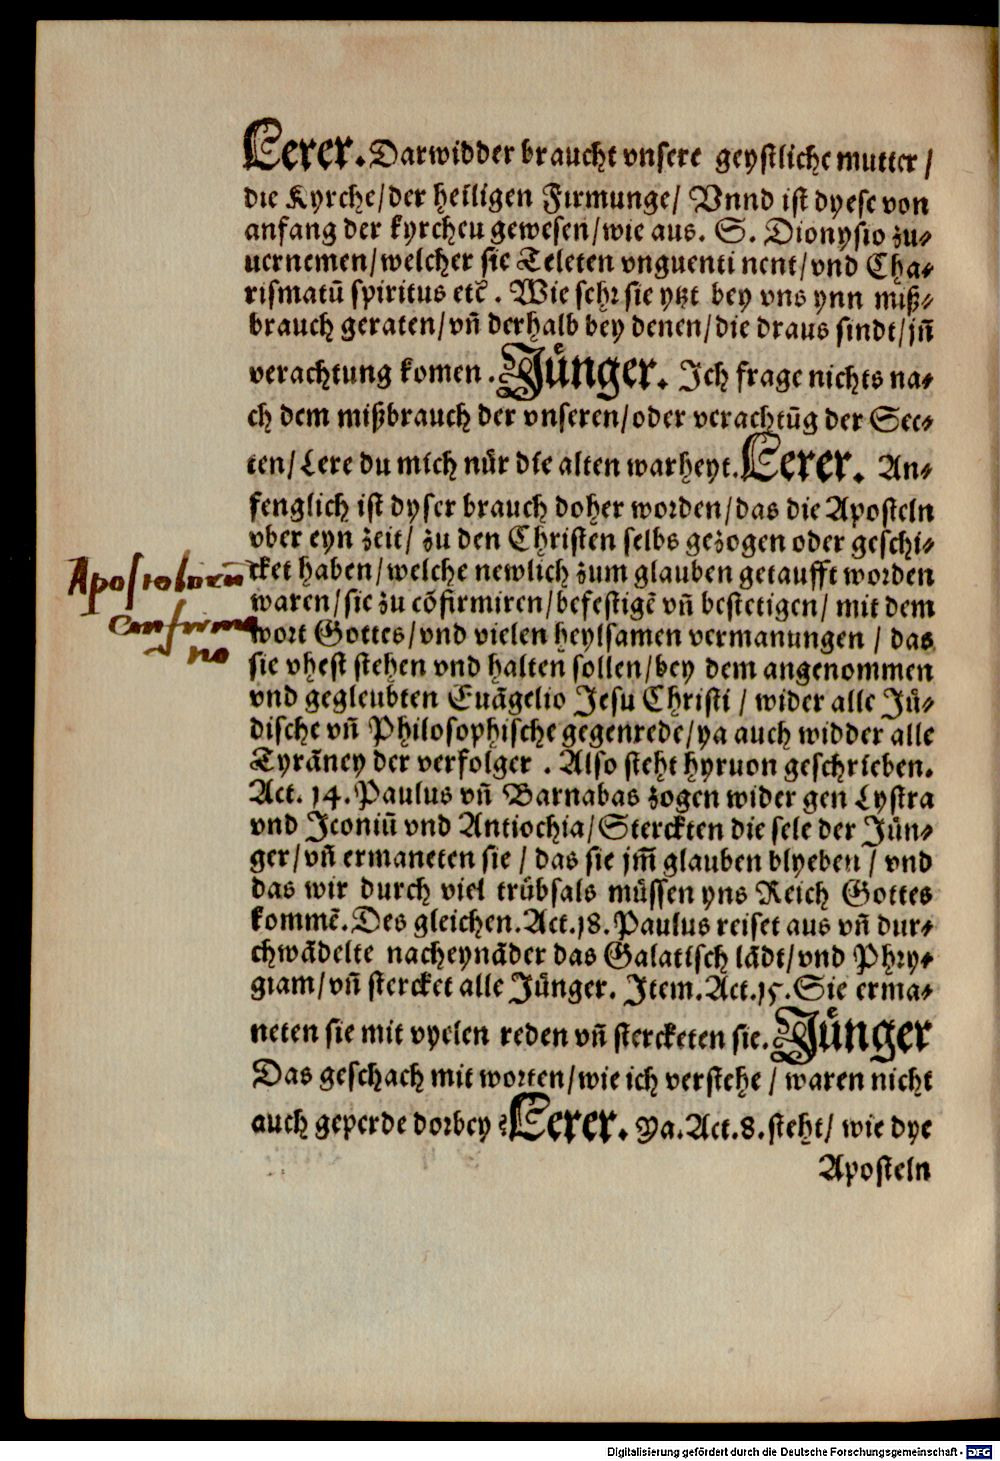 Lerer. Darwidder braucht vnsere geystliche mutter /
die Kyrche/ der heiligen Firmunge/ Vnnd ist dyese von
anfang der kyrchen gewesen/ wie aus. S. Dionysio zu⸗
uernemen/ welcher sie Teleten vnguenti nent/ vnd Cha⸗
rismatū spiritus etc̄. Wie sehr sie ytzt bey vns ynn miß⸗
brauch geraten/ vn̄ derhalb bey denen/ die draus sindt/ jn̄
verachtung komen. Jünger. Ich frage nichts na⸗
ch dem mißbrauch der vnseren/ oder verachtūg der Sec⸗
ten/ Lere du mich nür die alten warheyt. Lerer. An⸗
fenglich ist dyser brauch doher worden/ das die Aposteln
vber eyn zeit/ zu den Christen selbs gezogen oder geschi⸗
cket haben/ welche newlich zum glauben getaufft worden
waren/ sie zu cōfirmiren/ befestigē vn̄ bestetigen/ mit dem
wort Gottes/ vnd vielen heylsamen vermanungen / das
sie vhest stehen vnd halten sollen/ bey dem angenommen
vnd gegleubten Euāgelio Jesu Christi / wider alle Jü⸗
dische vn̄ Philosophische gegenrede/ ya auch widder alle
Tyrāney der verfolger . Also steht hyruon geschrieben.
Act. 14. Paulus vn̄ Barnabas zogen wider gen Lystra
vnd Iconiū vnd Antiochia/ Sterckten die sele der Jün⸗
ger/ vn̄ ermaneten sie / das sie jm̄ glauben blyeben / vnd
das wir durch viel trübsals müssen yns Reich Gottes
kommē. Des gleichen. Act. 18. Paulus reiset aus vn̄ dur⸗
chwādelte nacheynāder das Galatisch lādt/ vnd Phry⸗
giam/ vn̄ stercket alle Jünger. Item. Act. 15. Sie erma⸗
neten sie mit vyelen reden vn̄ sterckten sie. Jünger
Das geschach mit worten/ wie ich verstehe / waren nicht
auch geperde dorbey? Lerer. Ya. Act. 8. steht/ wie dye
Aposteln
Apostolorū
Confirma
no
Digitalisierung gefördert durch die Deutsche Forschungsgemeinschaft - DFG